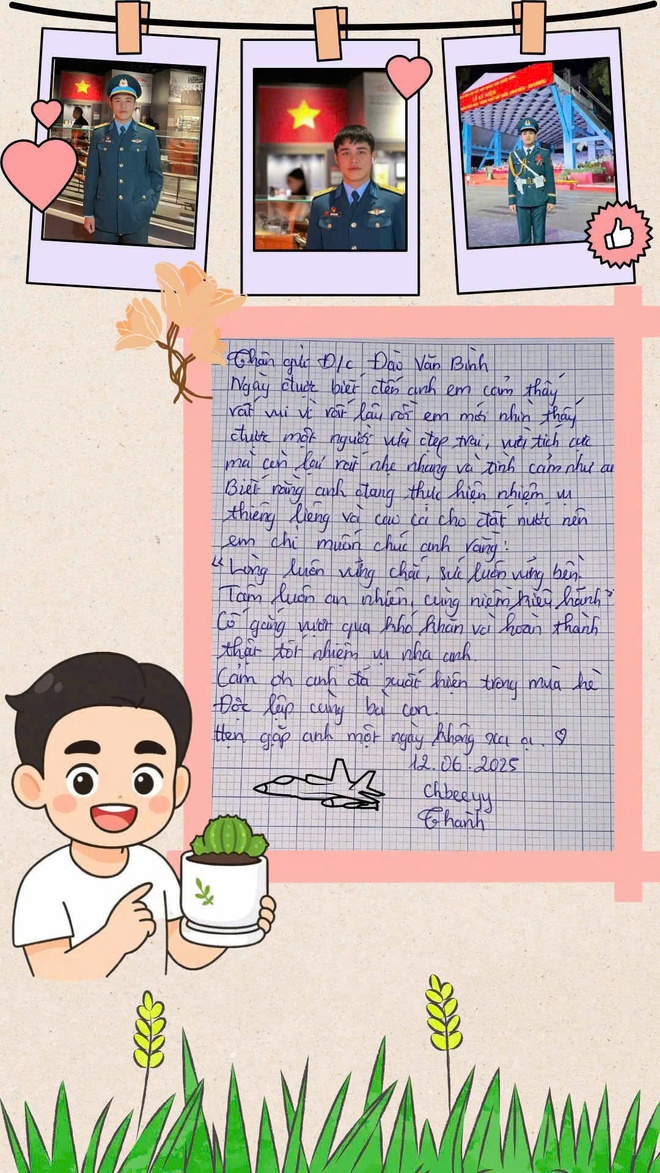 LỄ KỶ NIỆM
Thân gửi Đ/c Đào Văn Bình
Ngày được biết đến anh em cảm thấy
rất vui vì rất lâu rồi em mới nhìn thấy
được một người vừa đẹp trai, vừa tích cực
mà còn lại rất nhẹ nhàng và tình cảm như
Biết rằng anh đang thực hiện nhiệm vụ
thiêng liêng và cao cả cho đất nước nên
em chỉ muốn chúc anh rằng:
"Lòng luôn vững chãi, sức luôn vững bền.
Tâm luôn an nhiên, cùng niềm kiêu hãnh"
Cố gắng vượt qua khó khăn và hoàn thành
thật tốt nhiệm vụ nha anh.
Cảm ơn anh đã xuất hiện trong mùa hè
Độc lập cùng bà con.
Hẹn gặp anh một ngày không xa ạ. ♡
12.06.2025
Chbeeyy
Thanh